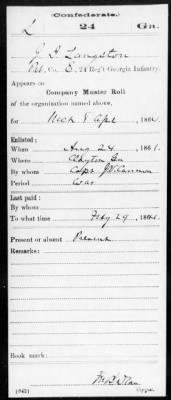 (Confederate.)
L 24 Ga.
J. J. Langston
Pvt. Co. E, 24 Reg't Georgia Infantry.
Appears on
Company Muster Roll
of the organization named above,
for Mch & Apl, 1864.
Enlisted:
When Aug 24, 1861.
Where Clayton Ga
By whom Capt.
Period War
Last paid:
By whom
To what time Feby 29, 1864.
Present or absent Present
Remarks:
Book mark:
(642) Copyist.